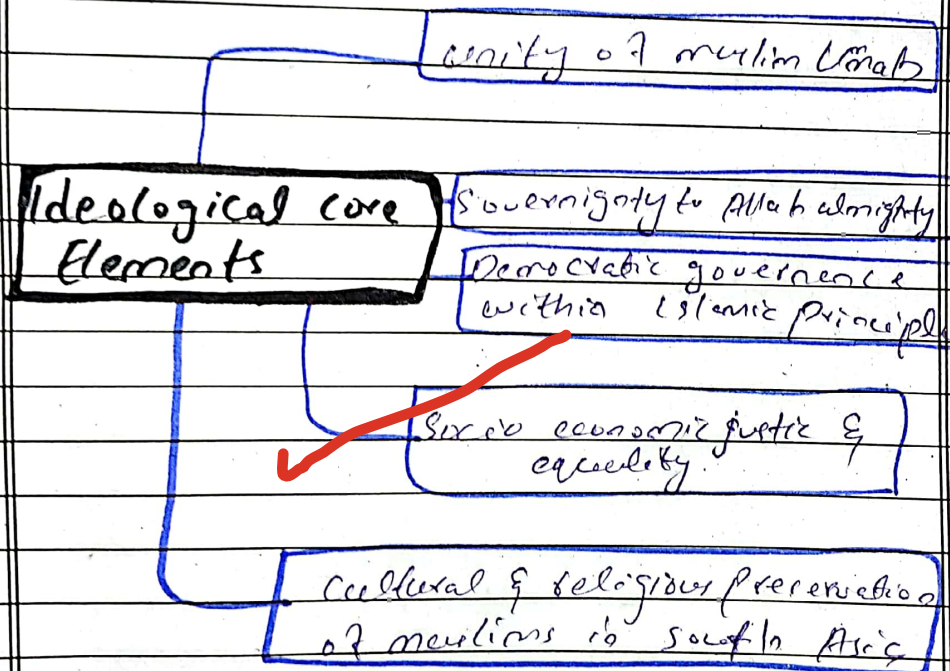 unity of muslim Ummah
Ideological core
Elements
Sovernignty to Allah almighty
Democratic governence
within Islamic Principl
Socio economic justic &
equality
Cultural & religious Preservation
of muslims in South Asia